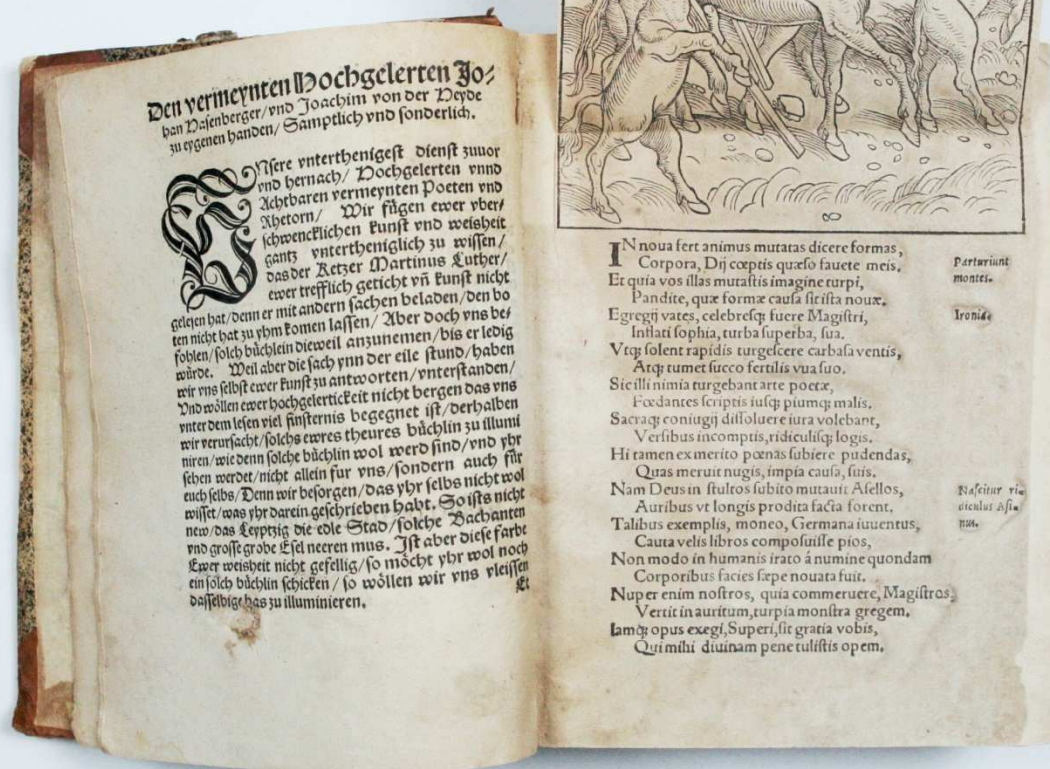 Den vermeynten Hochgelerten Jo⸗
han Hasenberger/ vnd Joachim von der Heyde
zu eygenen handen/ Samptlich vnd sonderlich.
VNsere vnterthenigest dienst zuuor
vnd hernach/ Hochgelerten vnnd
Achtbaren vermeynten Poeten vnd
Rhetorn/ Wir fůgen ewer vber⸗
schwencklichen kunst vnd weisheit
gantz vntertheniglich zu wissen/
das der Ketzer Martinus Luther/
ewer trefflich geticht vñ kunst nicht
gelesen hat/ denn er mit andern sachen beladen/ den bo
ten nicht hat zu yhm komen lassen/ Aber doch vns be⸗
fohlen/ solch bůchlein dieweil anzunemen/ bis er ledig
wůrde. Weil aber die sach ynn der eile stund/ haben
wir vns selbst ewer kunst zu antworten/ vnterstanden/
Vnd wöllen ewer hochgelertickeit nicht bergen das vns
vnter dem lesen viel finsternis begegnet ist/ derhalben
wir verursacht/ solchs ewres theures bůchlin zu illumi
niren/ wie denn solche bůchlin wol werd sind/ vnd yhr
sehen werdet/ nicht allein fur vns/ sondern auch fůr
euch selbs/ Denn wir besorgen/ das yhr selbs nicht wol
wisset/ was yhr darein geschrieben habt. So ists nicht
new/ das Leyptzig die edle Stad/ solche Bachanten
vnd grosse grobe Esel neeren mus. Jst aber diese farbe
Ewer weisheit nicht gefellig/ so möcht yhr wol noch
ein solch bůchlin schicken/ so wöllen wir vns vleissen
dasselbige bas zu illuminieren.
Et
IN noua fert animus mutatas dicere formas,
Corpora, Dij cœptis quæso fauete meis.
Et quia vos illas mutastis imagine turpi,
Pandite, quæ formæ causa sit ista nouæ.
Egregij vates, celebresq; fuere Magistri,
Inflati sophia, turba superba, sua.
Vtq; solent rapidis turgescere carbasa ventis,
Atq; tumet succo fertilis vua suo.
Sic illi nimia turgebant arte poetæ,
Fœdantes scriptis iusq; piumq; malis.
Sacraq; coniugij dissoluere iura volebant,
Versibus incomptis, ridiculisq; logis.
Hi tamen ex merito pœnas subiere pudendas,
Quas meruit nugis, impia causa, suis.
Nam Deus in stultos subito mutauit Asellos,
Auribus vt longis prodita facta forent.
Talibus exemplis, moneo, Germana iuuentus,
Cauta velis libros composuisse pios,
Non modo in humanis irato á numine quondam
Corporibus facies sæpe nouata fuit.
Nuper enim nostros, quia commeruere, Magistros,
Vertit in auritum, turpia monstra gregem.
Iamq; opus exegi, Superi, sit gratia vobis,
Qui mihi diuinam pene tulistis opem.
Parturiunt
montes.
Ironia.
Nascitur ri⸗
diculus Asi⸗
nus.